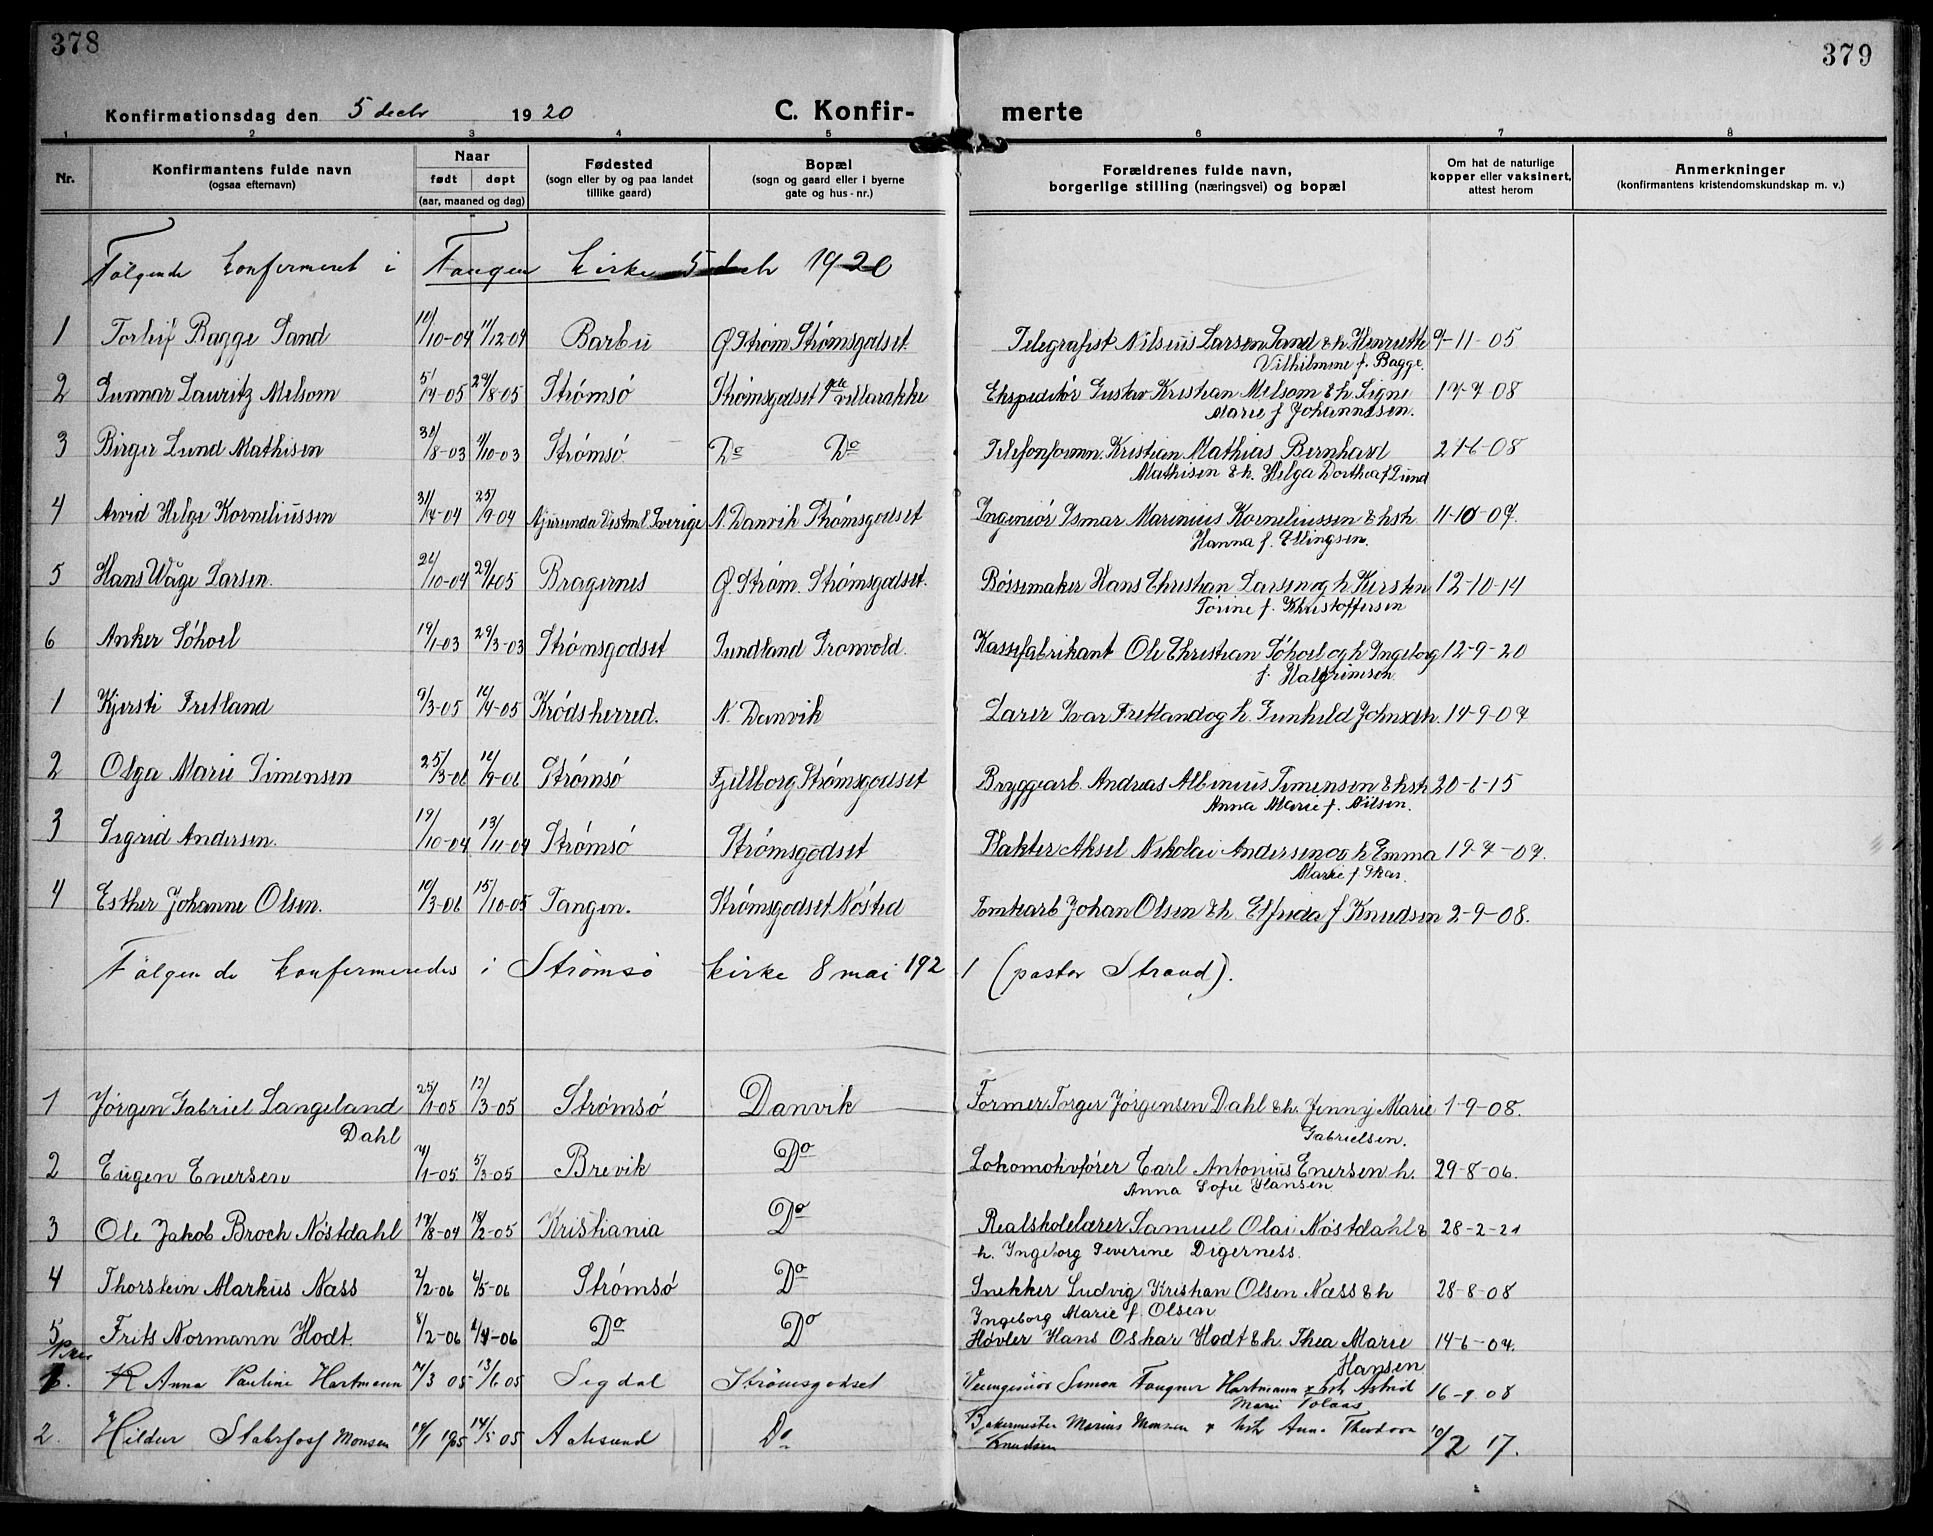 378
379
Konfirmationsdag den 5 decbr 1920
C. Konfir-
merte
1 2 3 4 5 6 7 8
Nr.
Konfirmantens fulde navn
(ogsaa efternavn)
Naar
født døpt
(aar, maaned og dag)
Fødested
(sogn eller by og paa landet
tillike gaard)
Bopæl
(sogn og gaard eller i byerne
gate og hus-nr.)
Forældrenes fulde navn,
borgerlige stilling (næringsvei) og bopæl
Om hat de naturlige
kopper eller vaksinert,
attest herom
Anmerkninger
(konfirmantens kristendomskundskap m. v.)
Følgende konfirmeret i Tangen kirke 5 decbr 1920
1 Torleif Bagge Sand /10-04 11/12-04 Barbu Ø. Strøm Strømsgodset. Telegrafist Nilsius Larsen Sand & h. Henriette 9-11-05
Vilhilmine f. Bagge.
2 Gunnar Lauritz Melsom 5/4-05 Strømsø Strømsgodset Ekspeditør Gustav Kristian Melsom & h. Signe 17-7-08
Marie f Johannesen.
3 Birger Lund Mathisen 31/8-03 4/10-03 Strømsø Do Do Telefonformn. Kristian Mathias Bernhard 24-6-08
Mathisen & h. Helga Dorthea f Lund
4 Arvid Helge Korneliussen 31/7-04 25/9-04 Njurunda Sverige N. Danvik Strømsgodset Ingeniør Ismar Marinius Korneliussen & hstr 11-10-07.
Hanna f. Ellingsen.
5 Hans Wåge Larsen. 21/10-04 Bragernes Ø. Strøm. Strømsgodset. Bøssemaker Hans Christian Larsen og h Kirstin 12-10-14
Torine f. Khristoffersen
6 Anker Søhoel 19/1-03 29/3-03 Strømsgodset Sundland Grønvold. Kassefabrikant Ole Christian Søhoel og h Ingeborg 12-9-20
f. Halgrimsen
1 Kjersti Fretland 9/3-05 Krødsherred. N. Danvik Lærer Ivar Fretland og h. Gunhild Johnsdtr. 14-9-07
2 Olga Marie Simensen 25/3-06 Strømsø Fjellborg Strømsgodset Bryggearb. Andreas Albinius Simensen & hstr 20-6-15
Anna Marie f. Nilsen.
3 Sigrid Andersen. 19/10-04 13/11-04 Strømsø Strømsgodset Slakter Aksel Nikolai Andersen og h Emma 19-7-07.
Marie f. Skar.
4 Esther Johanne Olsen. 10/3-06 15/10-05 Tangen. Strømsgodset Nøsted Tomtearb Johan Olsen & h. Elfrida f Knudsen 2-9-08.
Følgende konfirmeredes i Strømsø kirke 8 mai 1921 (pastor Strand).
1 Jørgen Gabriel Langeland 25/1-05 12/3-05 Strømsø Danvik Former Torger Jørgensen Dahl & h. Jenny Marie 1-9-08.
Dahl Gabrielsen.
2 Eugen Enersen 7/1-05 5/3-05 Brevik Do Lokomotivfører Carl Antonius Enersen h. 29-8-06.
Anna Sofie Hansen
3 Ole Jakob Broch Nøstdahl 17/8-04 18/2-05 Kristiania Do Realskolelærer Samuel Olai Nøstdahl & 28-2-21
h. Ingeborg Severine Digerness.
4 Thorstein Markus Næss 2/2-06 6/5-06 Strømsø Do Snekker Ludvig Kristian Olsen Næss & h 28-8-08
Ingeborg Marie f. Olsen
5 Frits Normann Hodt. 8/2-06 Do Do Høvler Hans Oskar Hodt & h. Thea Marie 14-6-07.
Hansen
1. Anna Pauline Hartmann 7/3 05 13/6 05 Sigdal Strømsgodset Simon Fougner Hartmann & hstr Astrid 16-9 08
Marie Tolaas
2. Hildur Monsen 14/1 1905 14/5 05 Aalesund Do Bakermester Marius Monsen & hstr Anna Theodora 10/2 17.
Knudsen